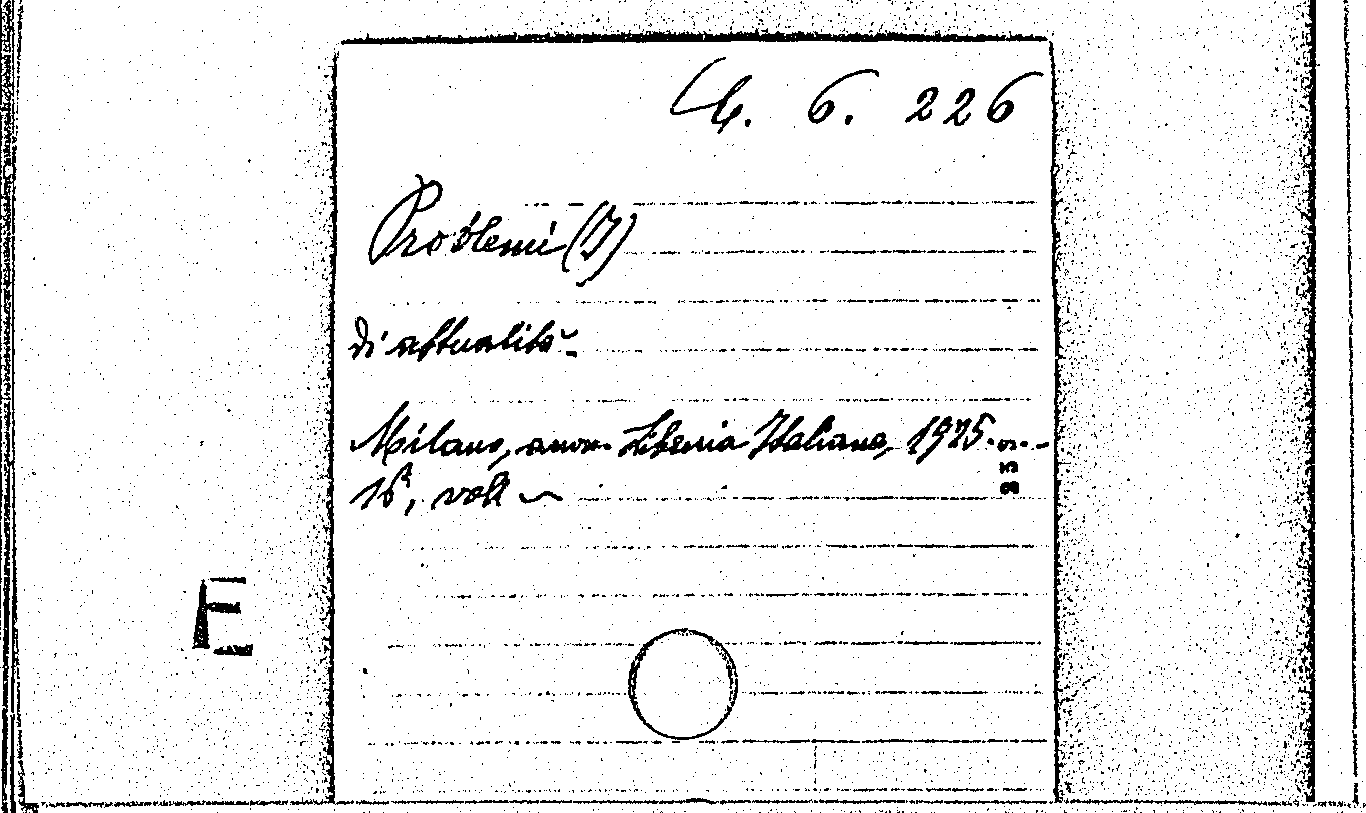 6. 226
Problemi (I)
di attualità -
Milano, anon. Libreria Italiana, 1925.
16°, voll
E